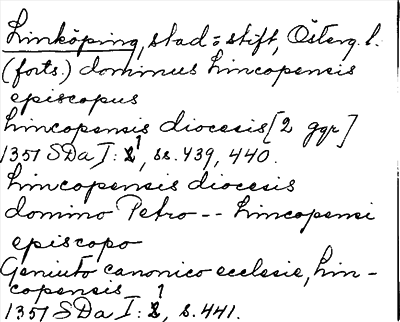 Linköping, stad o. stift, Österg. l.
(forts.) dominus Lincopensis
episcopus
Lincopensis diocesis [2 ggr]
1351 SDa I: 1, ss. 439, 440.
Lincopensis diocesis
domino Petro -- Lincopensi
episcopo
canonico ecclesie, Lin-
copensis
1351 SDa I: 1, s. 441.